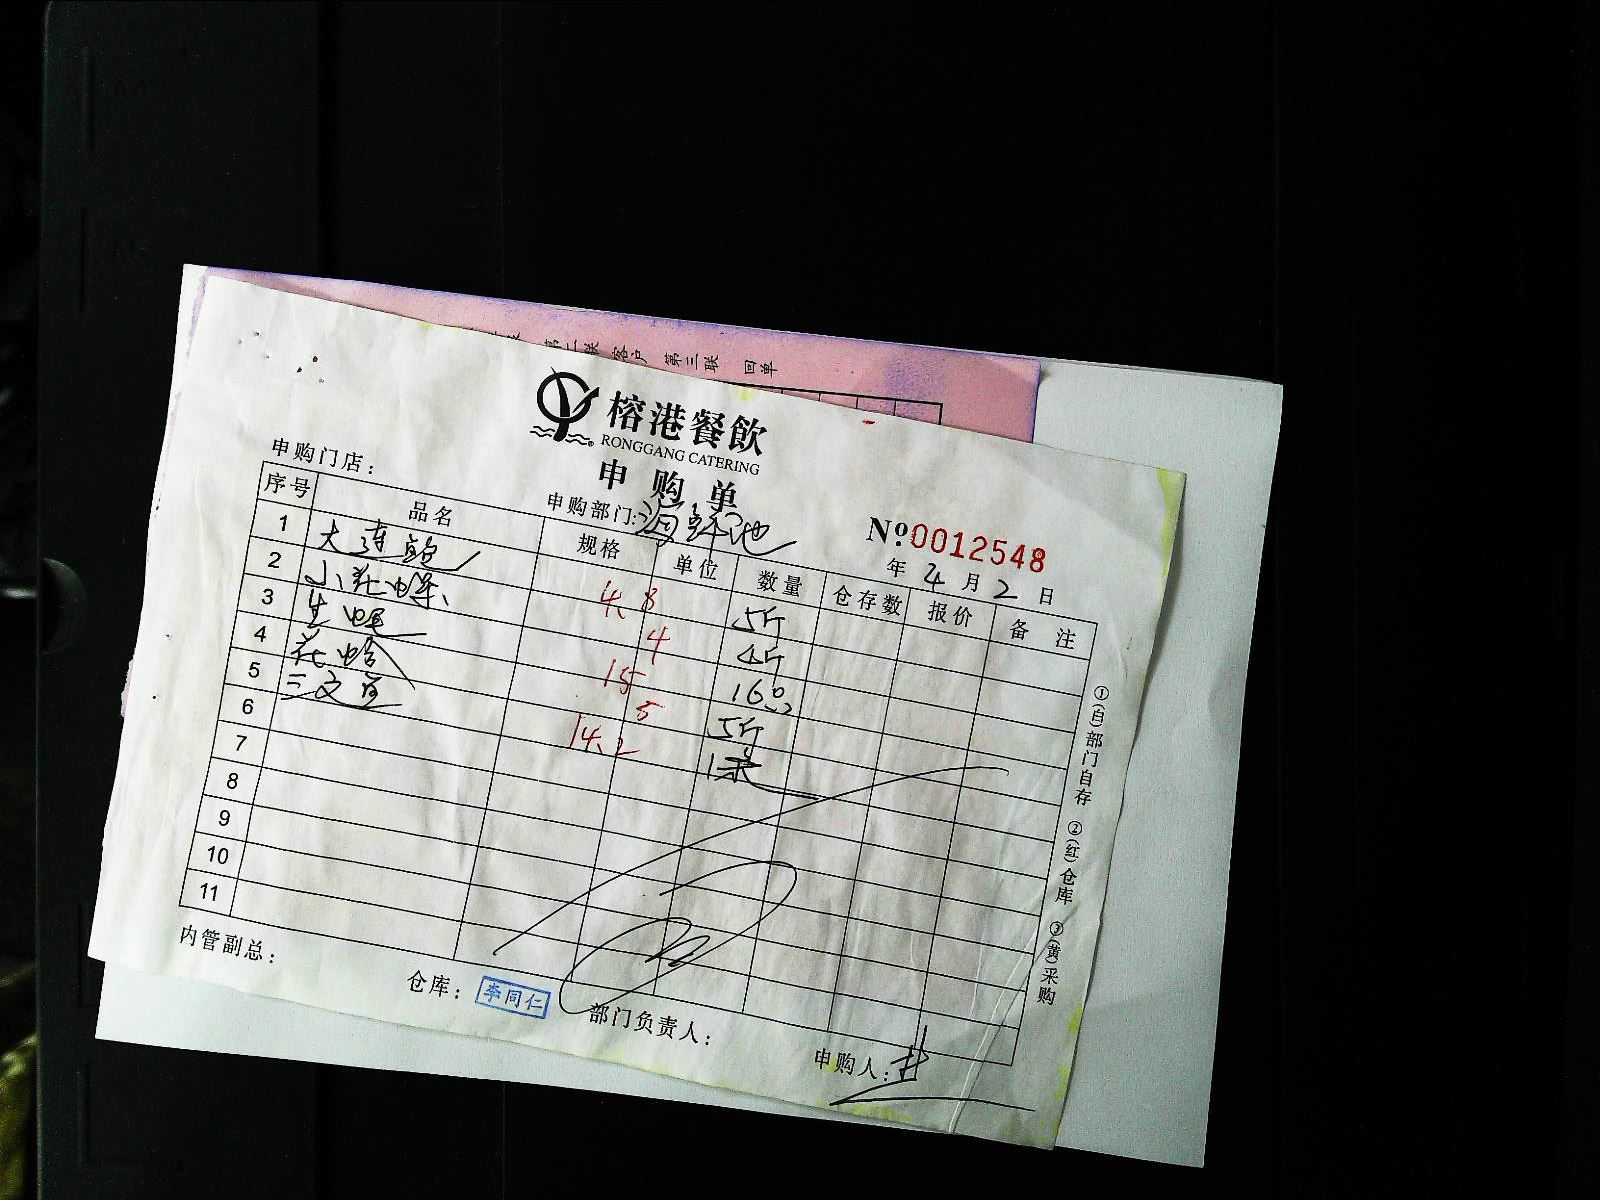 第二联 客户 第三联 回单
榕港餐飲
RONGGANG CATERING
申购单
申购门店：
申购部门：海鲜池
№0012548
年 4 月 2 日
序号 品名 规格 单位 数量 仓存数 报价 备注
1 大连鲍 4.8 5斤
2 小花螺 4 4斤
3 生蚝 15 16只
4 花蛤 5 5斤
5 三文鱼 14.2 1条
6
7
8
9
10
11
①(白)部门自存 ②(红)仓库 ③(黄)采购
内管副总：
仓库：李同仁
部门负责人：
申购人：